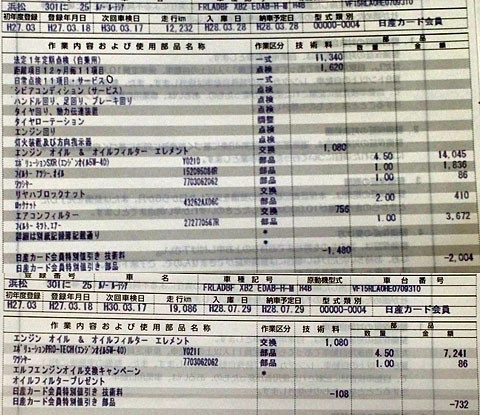 浜松 301に 25 ルノー ルーテシア FRLADBF XB2 EDAB-H-M H4B VF15RLA0HE0709310
初年度登録 登録年月日 次回車検日 走行km 入庫日 納車予定日 型式類別
H27.03 H27.03.18 H30.03.17 12,232 H28.03.28 H28.03.28 00000-0004 日産カード会員
作業内容および使用部品名称 作業区分 技術料 部品
数量 金額
法定1年定期点検(自乗用) 一式 11,340
距離項目12ヶ月点11項目 点検 1,620
日常点検11項目・サービスO 一式
シビアコンディション(サービス) 点検
ハンドル回り、足回り、ブレーキ回り 点検
タイヤ回り、動力伝達装置 点検
タイヤローテーション 調整
エンジン回り 点検
灯火装置及び方向指示器 点検
エンジン オイル & オイルフィルター エレメント 交換 1,080
エボリューションSXR(エンジンオイル5W-40) Y0210 部品 4.50 14,045
フィルター アッシー,オイル 152095084R 部品 1.00 1,836
ワッシャー 7703062062 部品 1.00 86
リヤハブロックナット 交換
ロックナット 43262AX06C 部品 2.00 410
エアコンフィルター 交換 756
フィルター キット,エアー 272770567R 部品 1.00 3,672
詳細は別紙記録簿記載通り *
*
日産カード会員特別値引き 技術料 -1,480
日産カード会員特別値引き 部品 -2,004
登録番号 車名 車種記号 原動機型式 車台番号
浜松 301に 25 ルノー ルーテシア FRLADBF XB2 EDAB-H-M H4B VF15RLA0HE0709310
初年度登録 登録年月日 次回車検日 走行km 入庫日 納車予定日 型式類別
H27.03 H27.03.18 H30.03.17 19,086 H28.07.29 H28.07.29 00000-0004 日産カード会員
作業内容および使用部品名称 作業区分 技術料 部品
数量 金額
エンジン オイル & オイルフィルター エレメント 交換 1,080
エボリューションPRO-TECH(エンジンオイル5W-40) Y0211 部品 4.50 7,241
ワッシャー 7703062062 部品 1.00 86
エルフエンジンオイル交換キャンペーン *
オイルフィルタープレゼント
日産カード会員特別値引き 技術料 -108
日産カード会員特別値引き 部品 -732